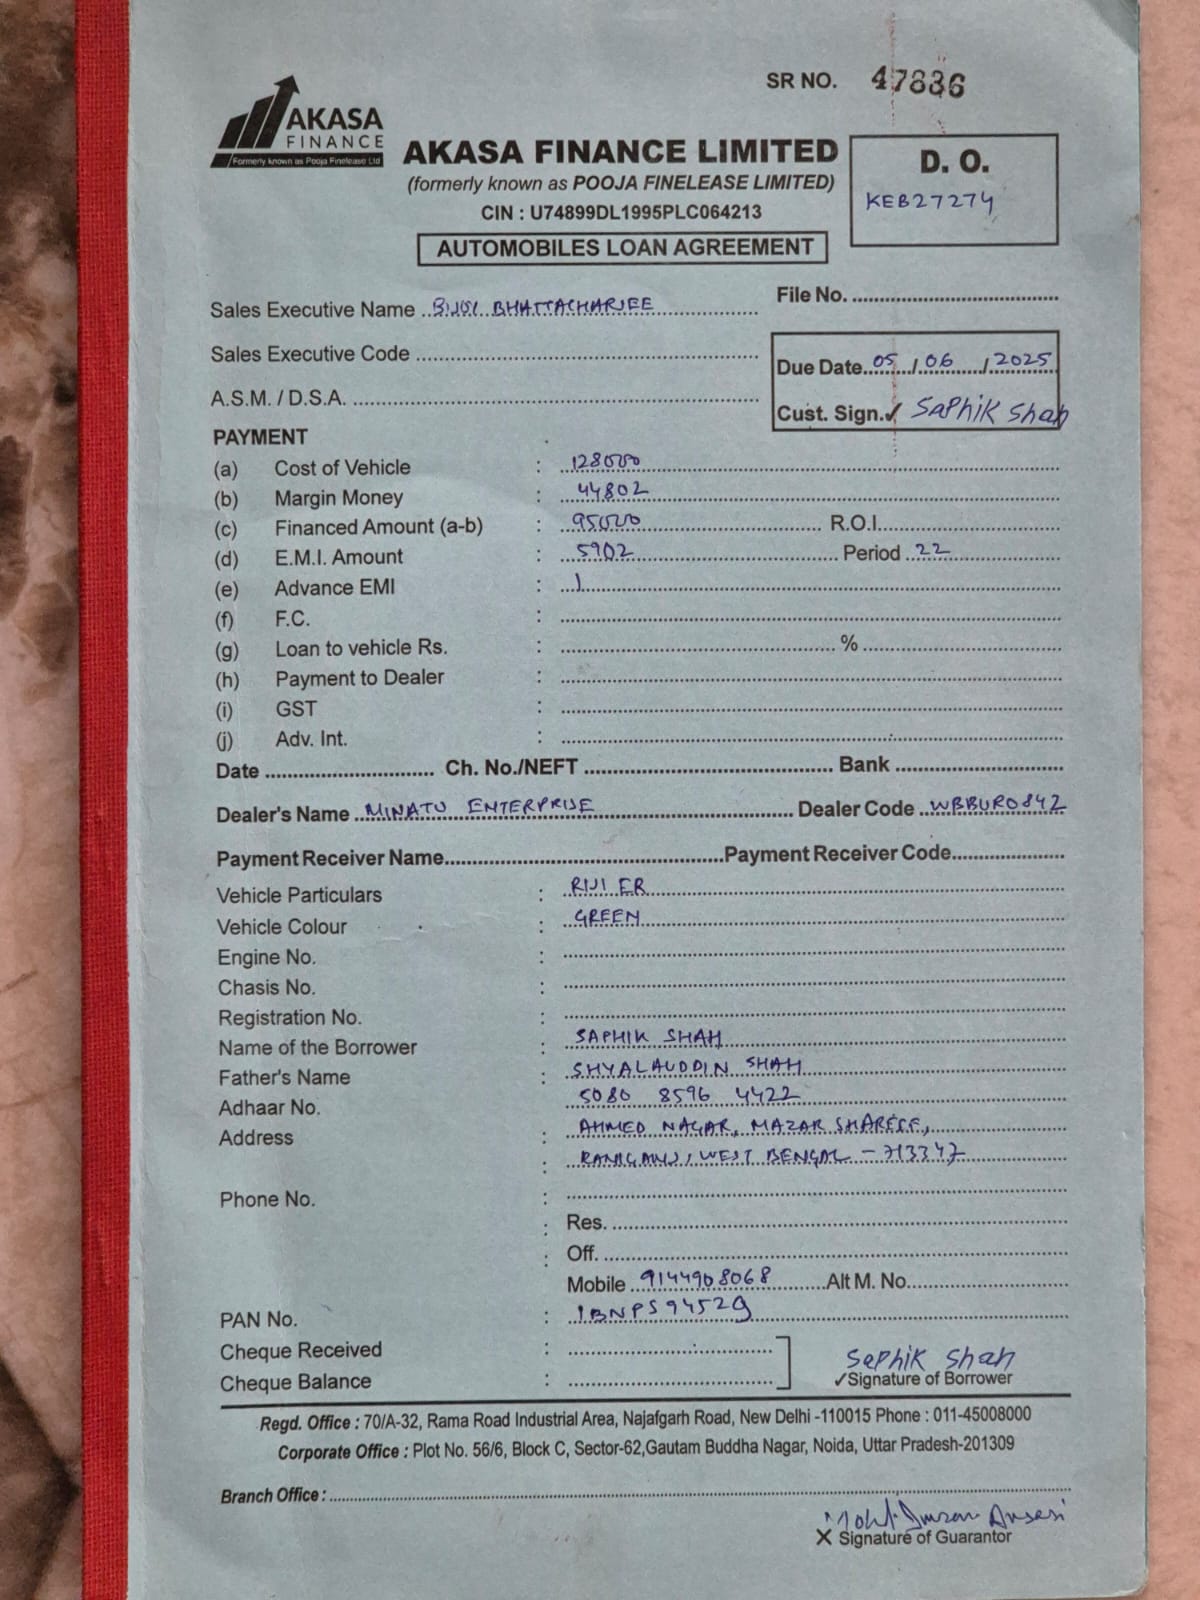 SR NO. 47836
AKASA
FINANCE
Formerly known as Pooja Finelease Ltd
AKASA FINANCE LIMITED
(formerly known as POOJA FINELEASE LIMITED)
CIN : U74899DL1995PLC064213
AUTOMOBILES LOAN AGREEMENT
D. O.
KEB27274
Sales Executive Name BIJOY BHATTACHARJEE
File No.
Sales Executive Code
Due Date 05/06/2025
A.S.M. / D.S.A.
Cust. Sign.✓ Saphik Shah
PAYMENT
(a) Cost of Vehicle : 128000
(b) Margin Money : 44802
(c) Financed Amount (a-b) : 95000 R.O.I.
(d) E.M.I. Amount : 5902 Period 22
(e) Advance EMI : 1
(f) F.C. :
(g) Loan to vehicle Rs. : %
(h) Payment to Dealer :
(i) GST :
(j) Adv. Int. :
Date Ch. No./NEFT Bank
Dealer's Name MINATU ENTERPRISE Dealer Code WBBUR0842
Payment Receiver Name Payment Receiver Code
Vehicle Particulars : RIJI ER
Vehicle Colour : GREEN
Engine No. :
Chasis No. :
Registration No. :
Name of the Borrower : SAPHIK SHAH
Father's Name : SHYALAUDDIN SHAH
Adhaar No. 5080 8596 4422
Address : AHMED NAGAR, MAZAR SHAREEF,
: RANIGANJ, WEST BENGAL - 713347
Phone No. :
: Res.
: Off.
Mobile 9144908068 Alt M. No.
PAN No. : IBNPS9452G
Cheque Received :
Cheque Balance :
Saphik Shah
✓Signature of Borrower
Regd. Office : 70/A-32, Rama Road Industrial Area, Najafgarh Road, New Delhi -110015 Phone : 011-45008000
Corporate Office : Plot No. 56/6, Block C, Sector-62,Gautam Buddha Nagar, Noida, Uttar Pradesh-201309
Branch Office :
Mohd. Imran Ansari
X Signature of Guarantor